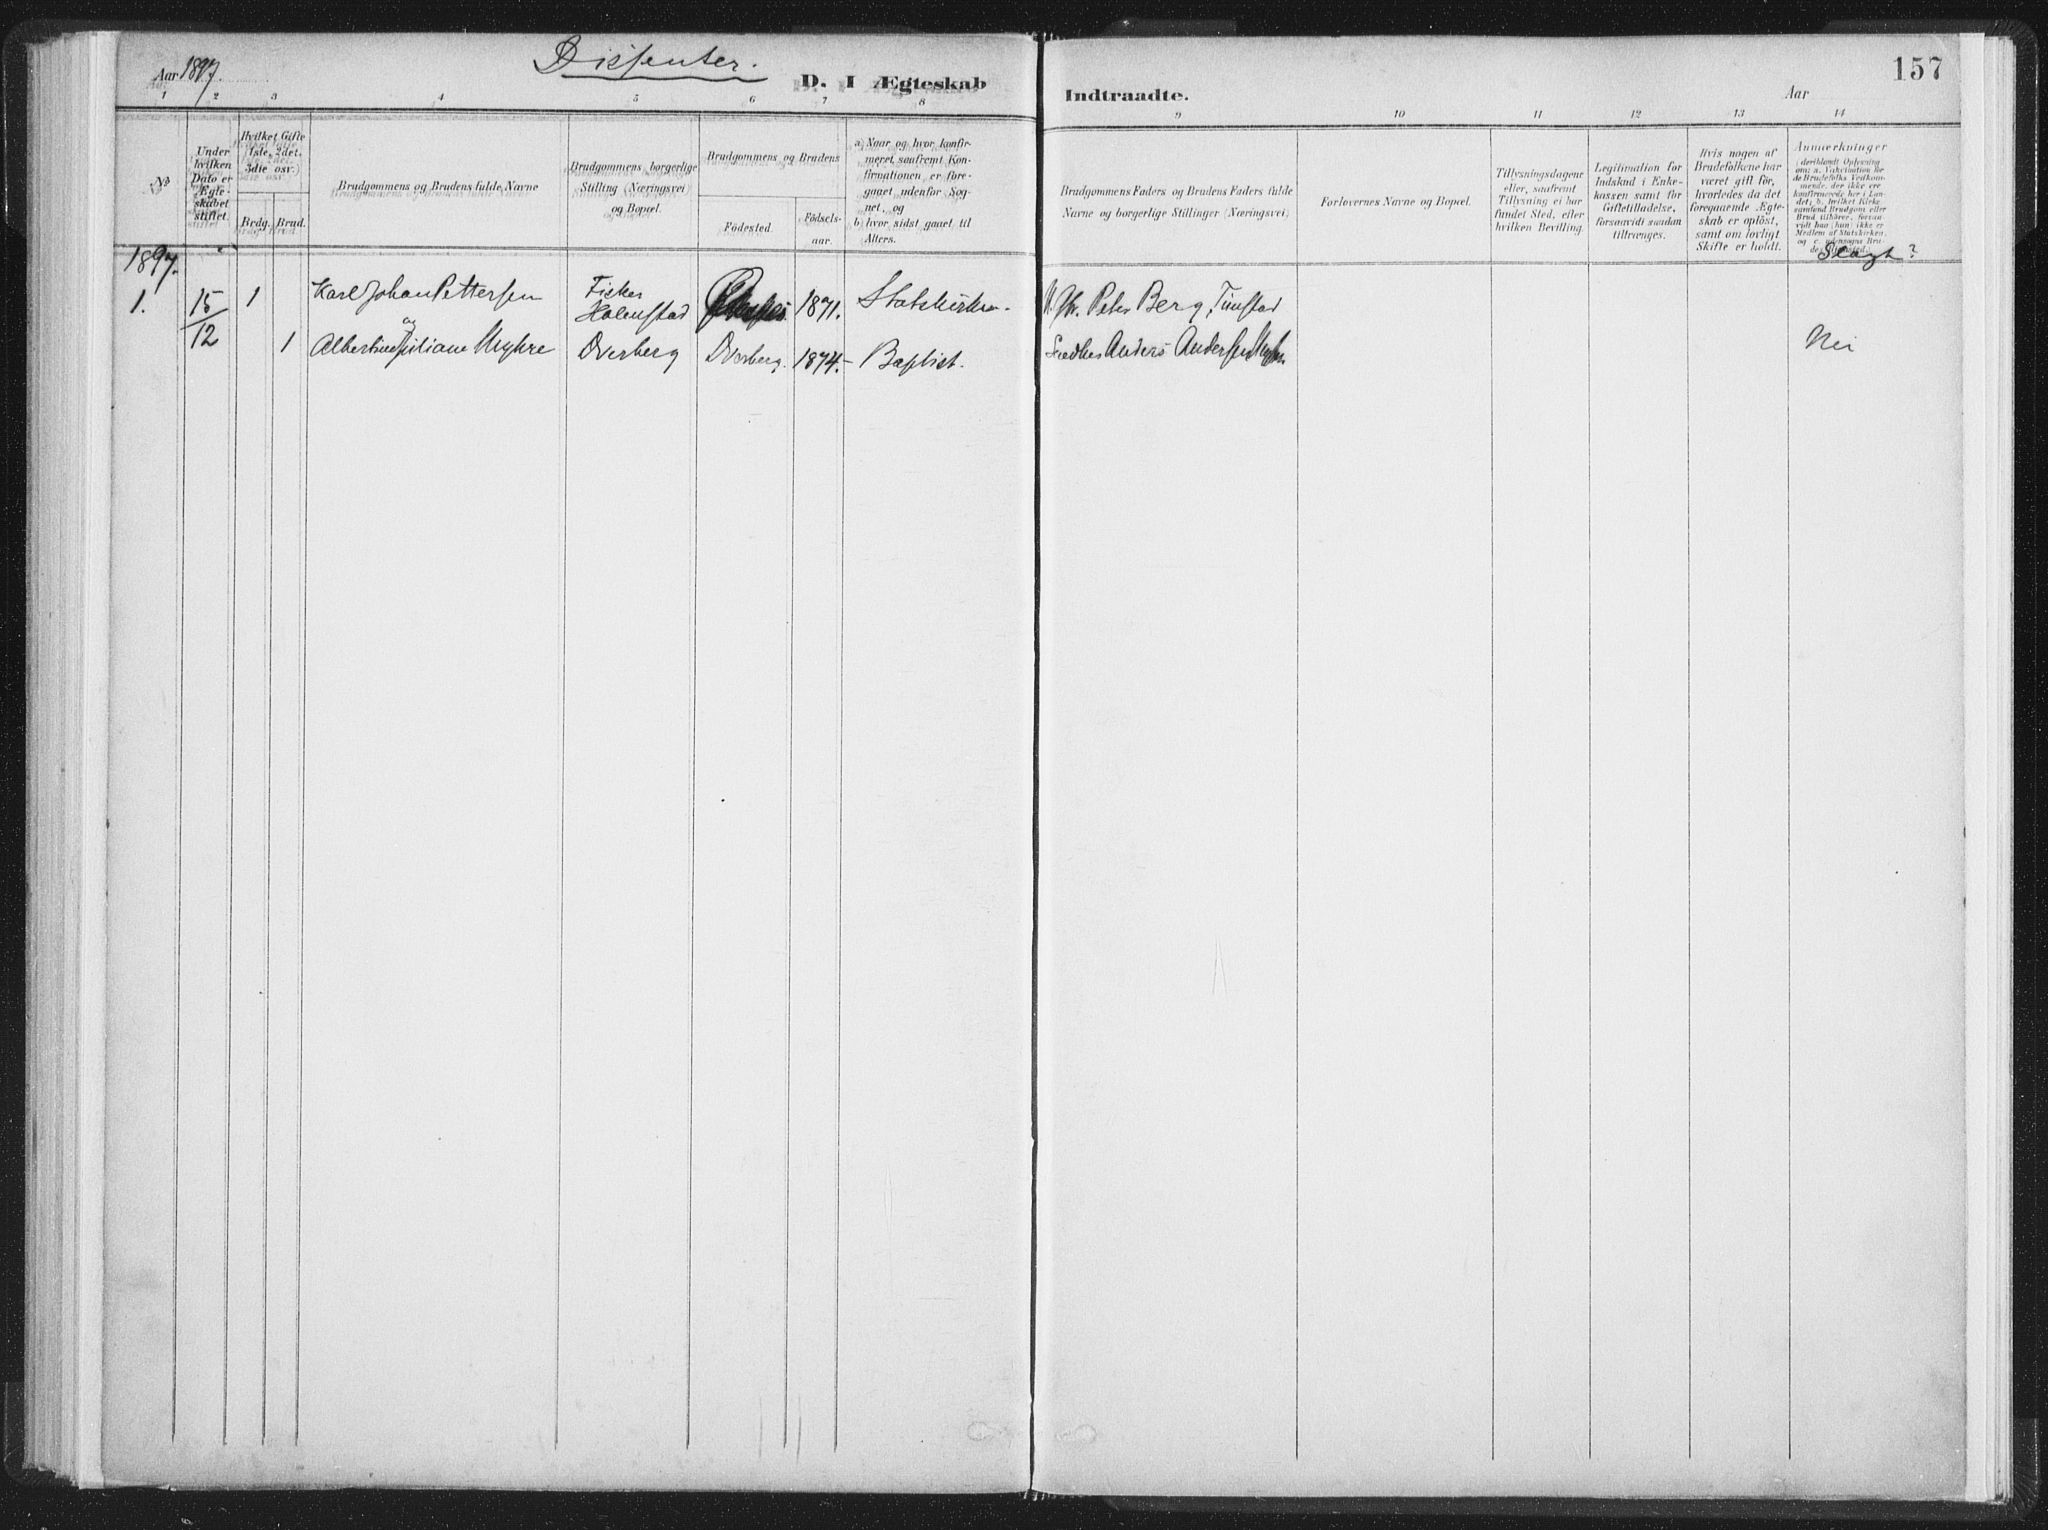 Aar 1897.
Dissenter.
D. I Ægteskab
Indtraadte.
Aar
157
1 2 3 4 5 6 7 8 9 10 11 12 13 14
№
Under
hvilken
Dato er
Ægte-
skabet
stiftet.
Hvilket Gifte
(1ste, 2det,
3die osv.)
Brdg. Brud.
Brudgommens og Brudens fulde Navne
Brudgommens borgerlige
Stilling (Næringsvei)
og Bopæl.
Brudgommens og Brudens
Födested.
Födsels-
aar.
a) Naar og hvor konfir-
meret, saafremt Kon-
firmationen er fore-
gaaet udenfor Sog-
net, og
b) hvor sidst gaaet til
Alters.
Brudgommens Faders og Brudens Faders fulde
Navne og borgerlige Stillinger (Næringsvei)
Forlovernes Navne og Bopæl.
Tillysningsdagene
eller, saafremt
Tillysning ei har
fundet Sted, efter
hvilken Bevilling.
Legitimation for
Indskud i Enke-
kassen samt for
Giftetilladelse,
forsaavidt saadan
tiltrænges.
Hvis nogen af
Brudefolkene har
været gift för,
hvorledes da det
foregaaende Ægte-
skab er oplöst,
samt om lovligt
Skifte er holdt.
Anmærkninger
(deriblandt Oplysning
om: a. Vaksination for
de Brudefolks Vedkom-
mende, der ikke ere
konfirmerede her i Lan-
det; b. hvilket Kirke-
samfund Brudgom eller
Brud tilhører, forsaa-
vidt han (hun) ikke er
Medlem af Statskirken,
Slægt?
1897.
1. 15/12 1 Karl Johan Pettersen Fisker Holmstad 1871. Statskirken Peter Berg, Tunstad
og
1 Albertine Juliane Myhre Overberg Overberg. 1874. Baptist. Anders Andersen Myhre Nei